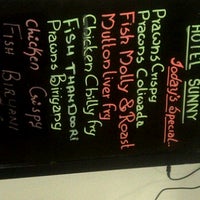 HOTEL SUNNY
Today's Special.
Prawns Crispy
Prawns Coluvada
Fish Molly & Roast
Mutton Liver fry
Chicken Chilly fry
FISH THANDOORI
Prawns Biriyang
Chicken Crispy
FISH BIRIYANI